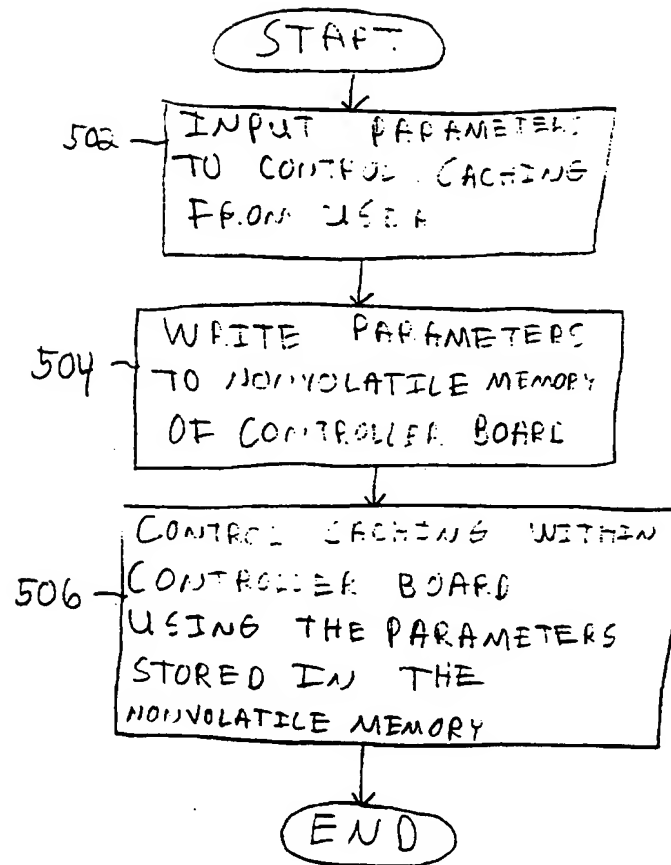 START
502
INPUT PARAMETERS
TO CONTROL CACHING
FROM USER
504
WRITE PARAMETERS
TO NONVOLATILE MEMORY
OF CONTROLLER BOARD
506
CONTROL CACHING WITHIN
CONTROLLER BOARD
USING THE PARAMETERS
STORED IN THE
NONVOLATILE MEMORY
END